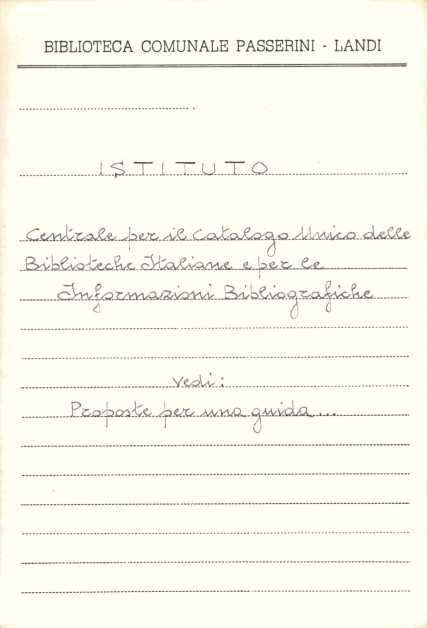 BIBLIOTECA COMUNALE PASSERINI - LANDI
ISTITUTO
Centrale per il Catalogo Unico delle
Biblioteche Italiane e per le
Informazioni Bibliografiche
vedi:
Proposte per una guida...